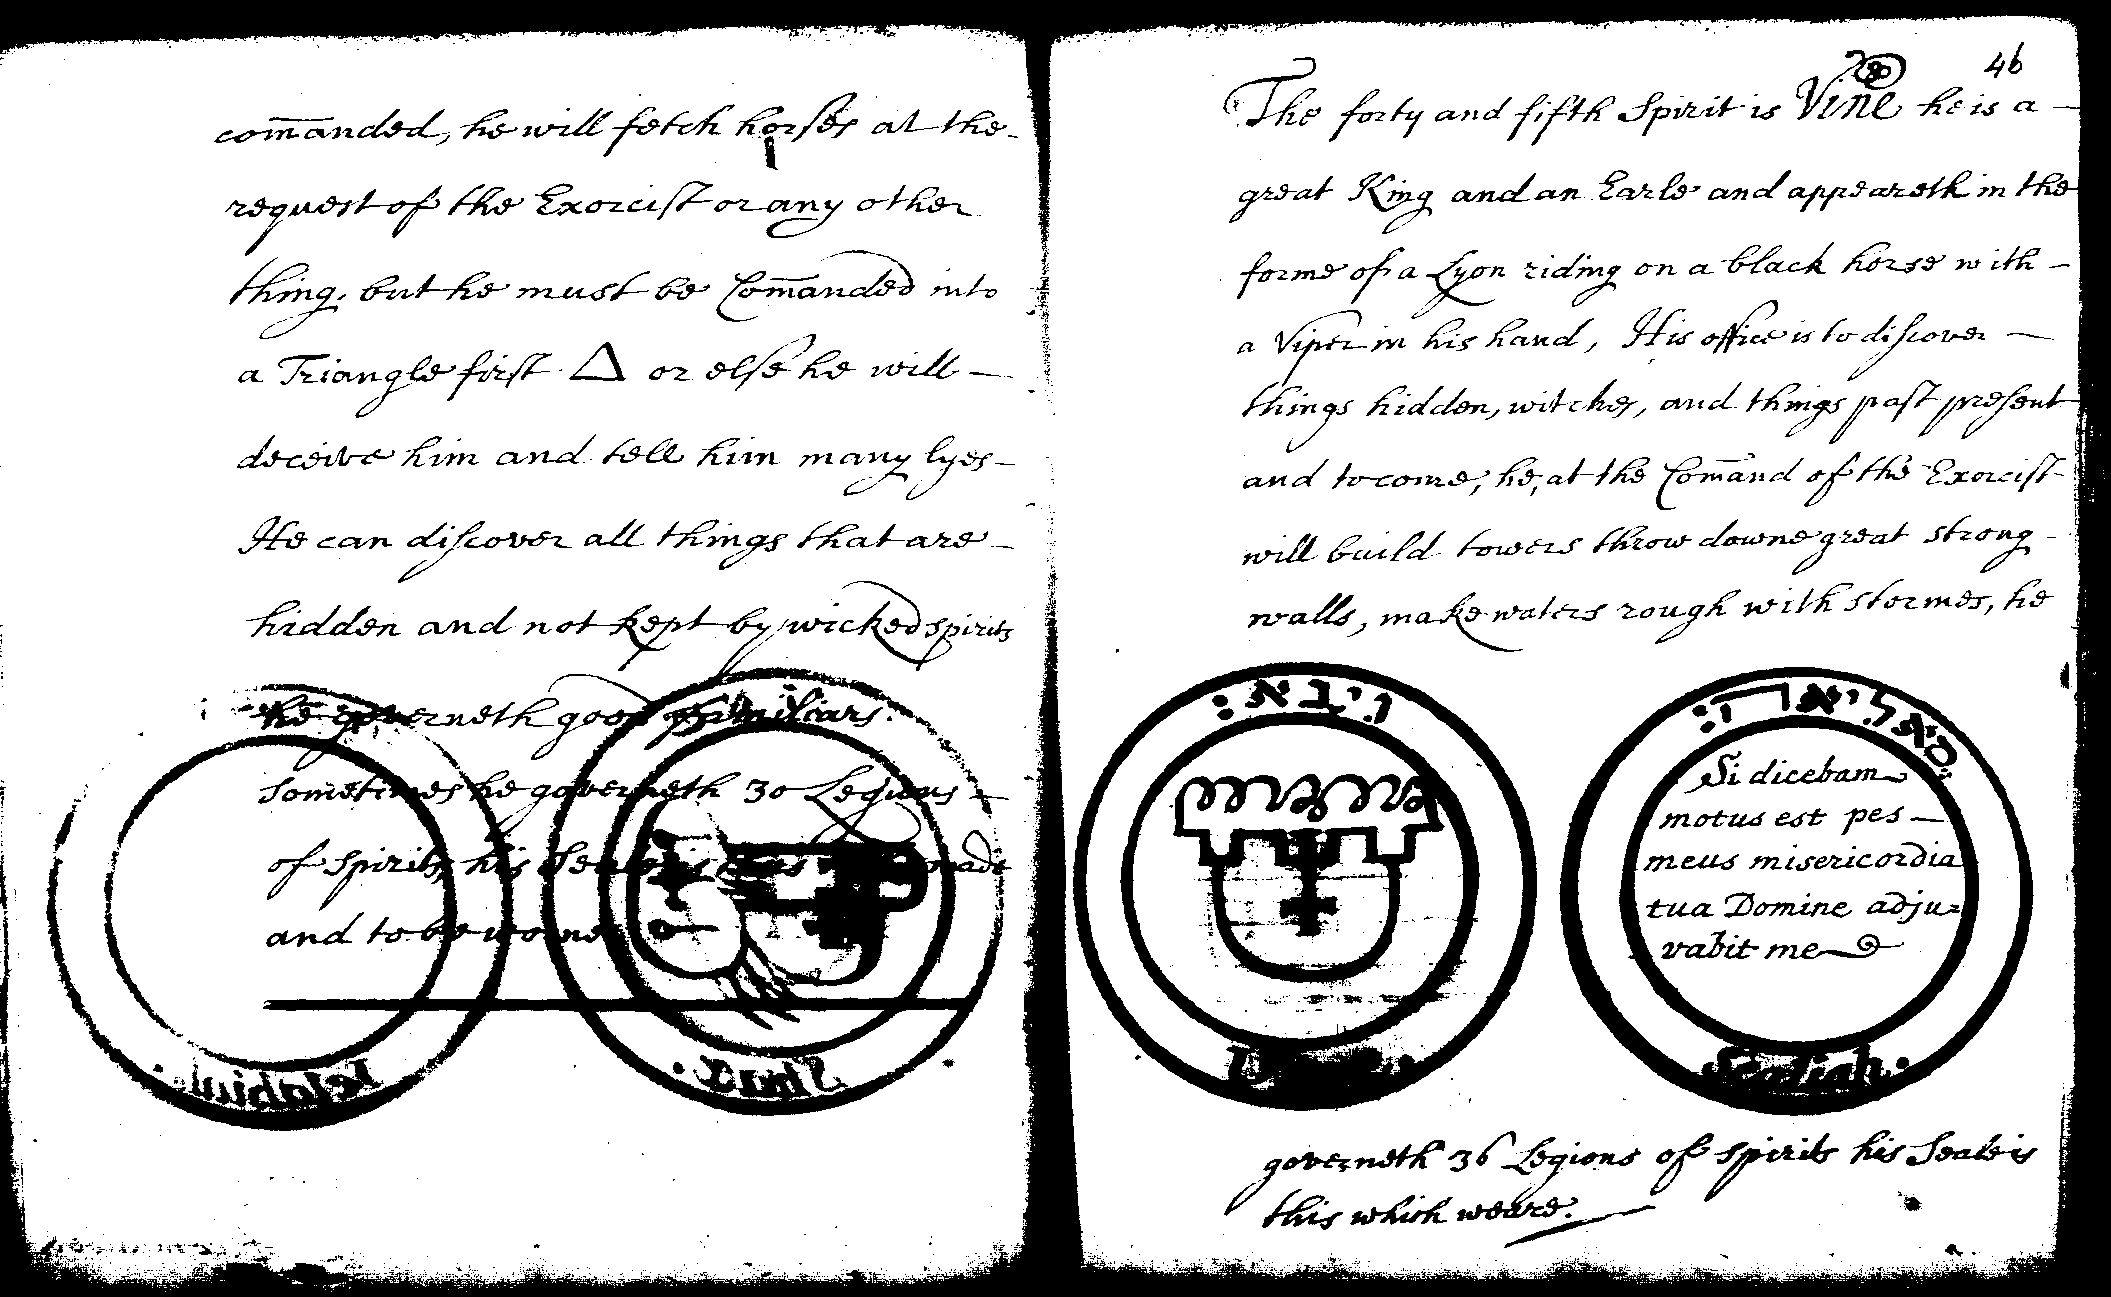 com̄anded, he will fetch horses at the
request of the Exorcist or any other
thing. but he must be Com̄anded into
a Triangle first △ or else he will —
deceive him and tell him many lyes —
He can discover all things that are —
hidden and not kept by wicked spirits
he governeth good familiars.
sometimes he governeth 30 Legions —
of spirits, his Seale is this made
and to be worne
46
The forty and fifth Spirit is Vine he is a —
great King and an Earle and appeareth in the
forme of a Lyon riding on a black horse with —
a Viper in his hand, His office is to discover —
things hidden, witches, and things past present
and to come, he, at the Com̄and of the Exorcist
will build towers throw downe great strong —
walls, make waters rough with stormes, he
ויבא:
סאליאה:
Si dicebam
motus est pes —
meus misericordia
tua Domine adju=
vabit me
Sealiah.
governeth 36 Legions of spirits his Seale is
this which weare.